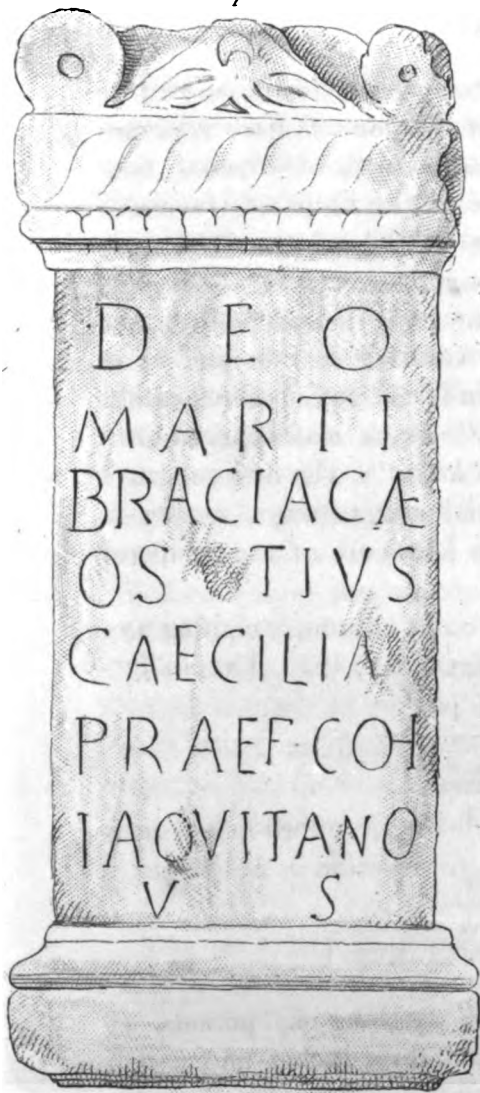 DEO
MARTI
BRACIACÆ
OS TIVS
CAECILIA
PRAEF COH
I AQVITANO
V S